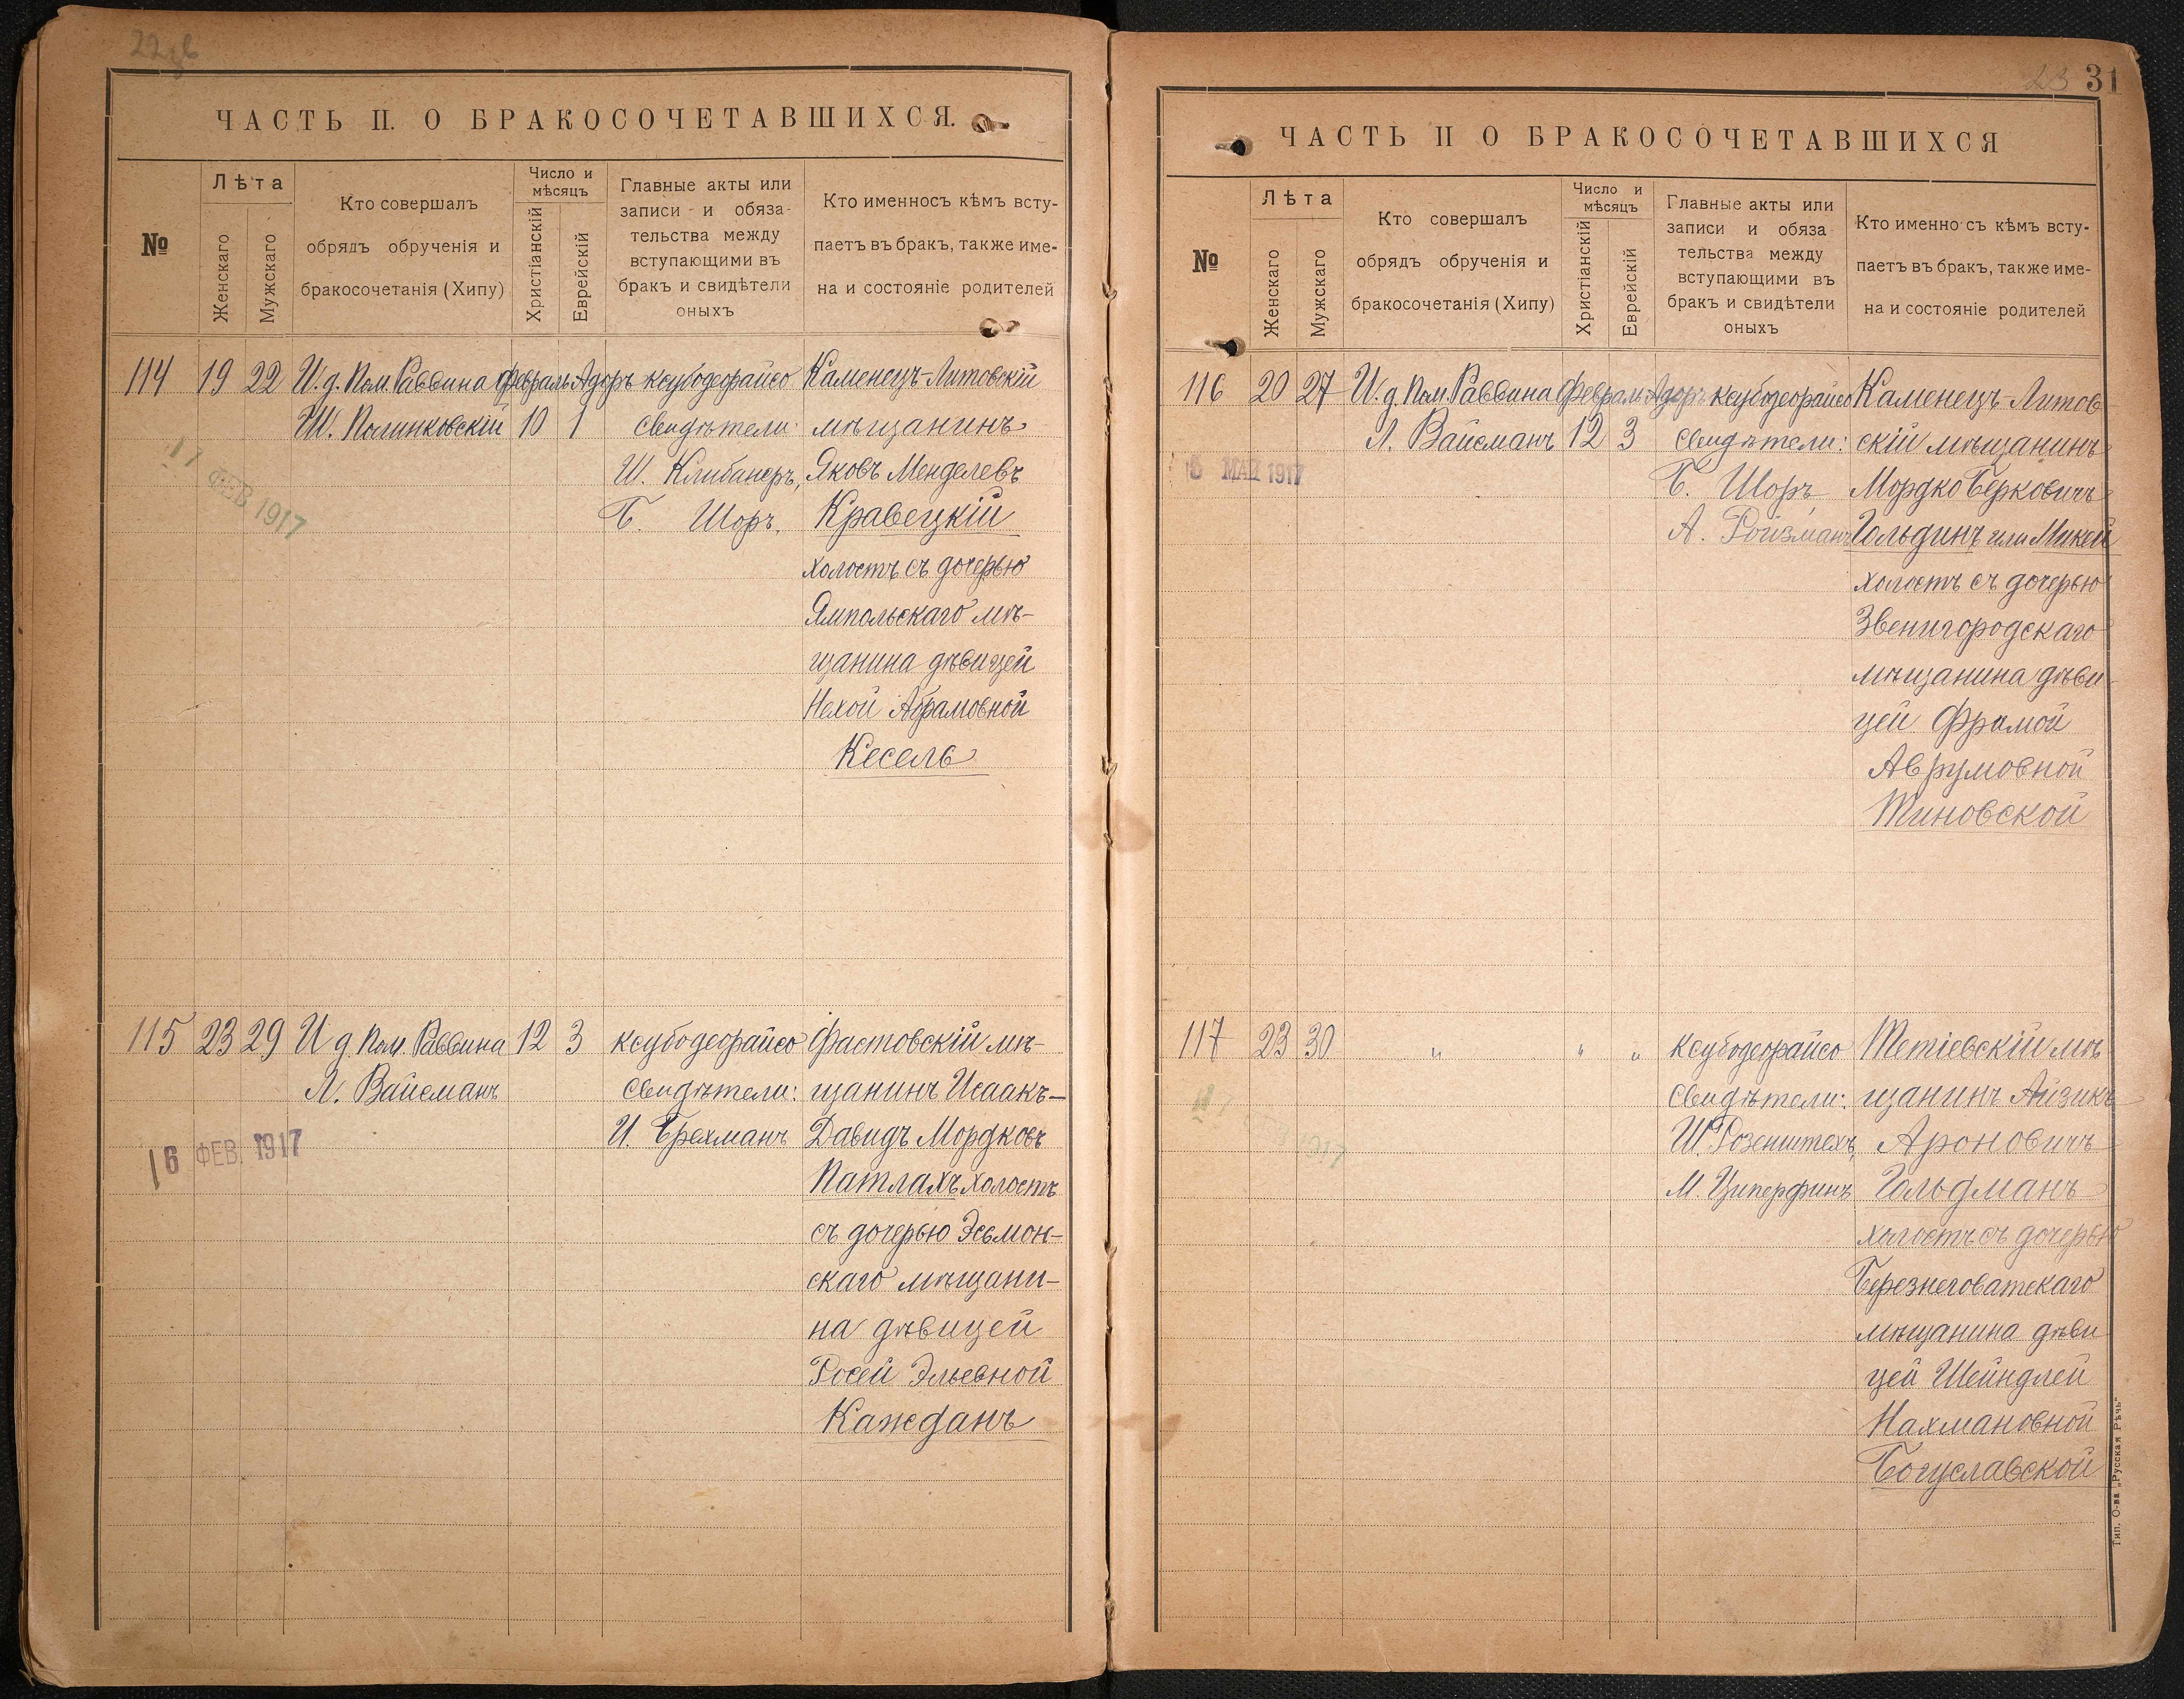 ЧАСТЬ II. О БРАКОСОЧЕТАВШИХСЯ.
№
Лѣта
Женскаго
Мужскаго
Кто совершалъ
обрядъ обрученія и
бракосочетанія (Хипу)
Число и
мѣсяцъ
Христіанскій
Еврейскій
Главные акты или
записи и обяза-
тельства между
вступающими въ
бракъ и свидѣтели
оныхъ
Кто именносъ кѣмъ всту-
паетъ въ бракъ, также име-
на и состояніе родителей
114 19 22 И. д. Пом. Раввина февраль Адоръ ксубодеорайсо Каменецъ-Литовскій
Ш. Полинковскій 10 1 свидѣтели: мѣщанинъ
Ш. Клибанеръ, Яковъ Менделевъ
Б. Шоръ. Кравецкій
холостъ съ дочерью
Ямпольскаго мѣ-
щанина дѣвицей
Нехой Абрамовной
Кесель
17 ФЕВ 1917
115 23 29 И д Пом. Раввина 12 3 ксубодеорайсо Фастовскій мѣ-
Л. Вайсманъ свидѣтели: щанинъ Исаакъ-
И. Брехманъ Давидъ Мордковъ
Патлахъ холостъ
съ дочерью Эсьмон-
скаго мѣщани-
на дѣвицей
Росей Эльевной
Кажданъ
16 ФЕВ. 1917
31
ЧАСТЬ II О БРАКОСОЧЕТАВШИХСЯ
№
Лѣта
Женскаго
Мужскаго
Кто совершалъ
обрядъ обрученія и
бракосочетанія (Хипу)
Число и
мѣсяцъ
Христіанскій
Еврейскій
Главные акты или
записи и обяза
тельства между
вступающими въ
бракъ и свидѣтели
оныхъ
Кто именно съ кѣмъ всту-
паетъ въ бракъ, также име-
на и состояніе родителей
116 20 27 И. д. Пом. Раввина Феврал Адоръ ксубодеорайсо Каменецъ-Литов
Л. Вайсманъ 12 3 свидѣтели: скій мѣщанинъ
Б. Шоръ, Мордко Берковичъ
А. Ройзманъ Гольдинъ или Микей
холостъ съ дочерью
Звенигородскаго
мѣщанина дѣви-
цей Фрамой
Аврумовной
Тиновской
МАЙ 1917
117 23 30 " " " ксубодеорайсо Тетіевскій мѣ
свидѣтели: щанинъ Айзикъ
Ш. Розенштехъ, Ароновичъ
М. Циперфинъ Гольдманъ
холостъ съ дочерью
Березнеговатскаго
мѣщанина дѣви
цей Шейндлей
Нахмановной
Богуславской
Тип. О-ва „Русская Рѣчь"